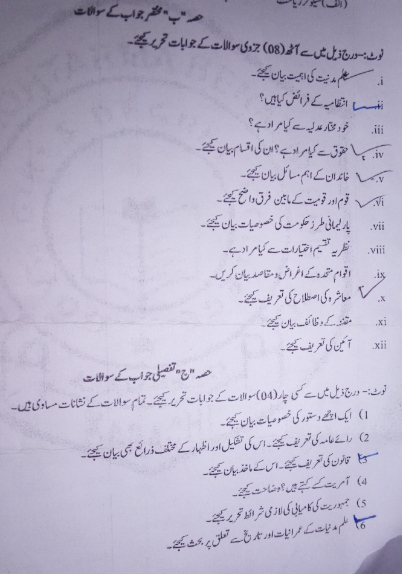 (الف)
حصہ "ب" مختصر جواب کے سوالات
نوٹ:- درج ذیل میں سے آٹھ (08) جزوی سوالات کے جوابات تحریر کیجئے۔
i. علم مدنیت کی اہمیت بیان کیجئے۔
ii. انتظامیہ کے فرائض کیا ہیں؟
iii. خود مختار عدلیہ سے کیا مراد ہے؟
iv. حقوق سے کیا مراد ہے؟ ان کی اقسام بیان کیجئے۔
v. خاندان کے اہم مسائل بیان کیجئے۔
vi. قوم اور قومیت کے مابین فرق واضح کیجئے۔
vii. پارلیمانی طرز حکومت کی خصوصیات بیان کیجئے۔
viii. نظریہ تقسیم اختیارات سے کیا مراد ہے۔
ix. اقوام متحدہ کے اغراض و مقاصد بیان کریں۔
x. معاشرہ کی اصطلاح کی تعریف کیجئے۔
xi. مقننہ کے وظائف بیان کیجئے۔
xii. آئین کی تعریف کیجئے۔
حصہ "ج" تفصیلی جواب کے سوالات
نوٹ:- درج ذیل میں سے کسی چار (04) سوالات کے جوابات تحریر کیجئے۔ تمام سوالات کے نشانات مساوی ہیں۔
1) ایک اچھے دستور کی خصوصیات بیان کیجئے۔
2) رائے عامہ کی تعریف کیجئے۔ اس کی تشکیل اور اظہار کے مختلف ذرائع بھی بیان کیجئے۔
3) قانون کی تعریف کیجئے۔ اس کے ماخذ بیان کیجئے۔
4) آمریت کسے کہتے ہیں؟ وضاحت کیجئے۔
5) جمہوریت کی کامیابی کی لازمی شرائط تحریر کیجئے۔
6) علم مدنیات کے عمرانیات اور تاریخ سے تعلق پر بحث کیجئے۔